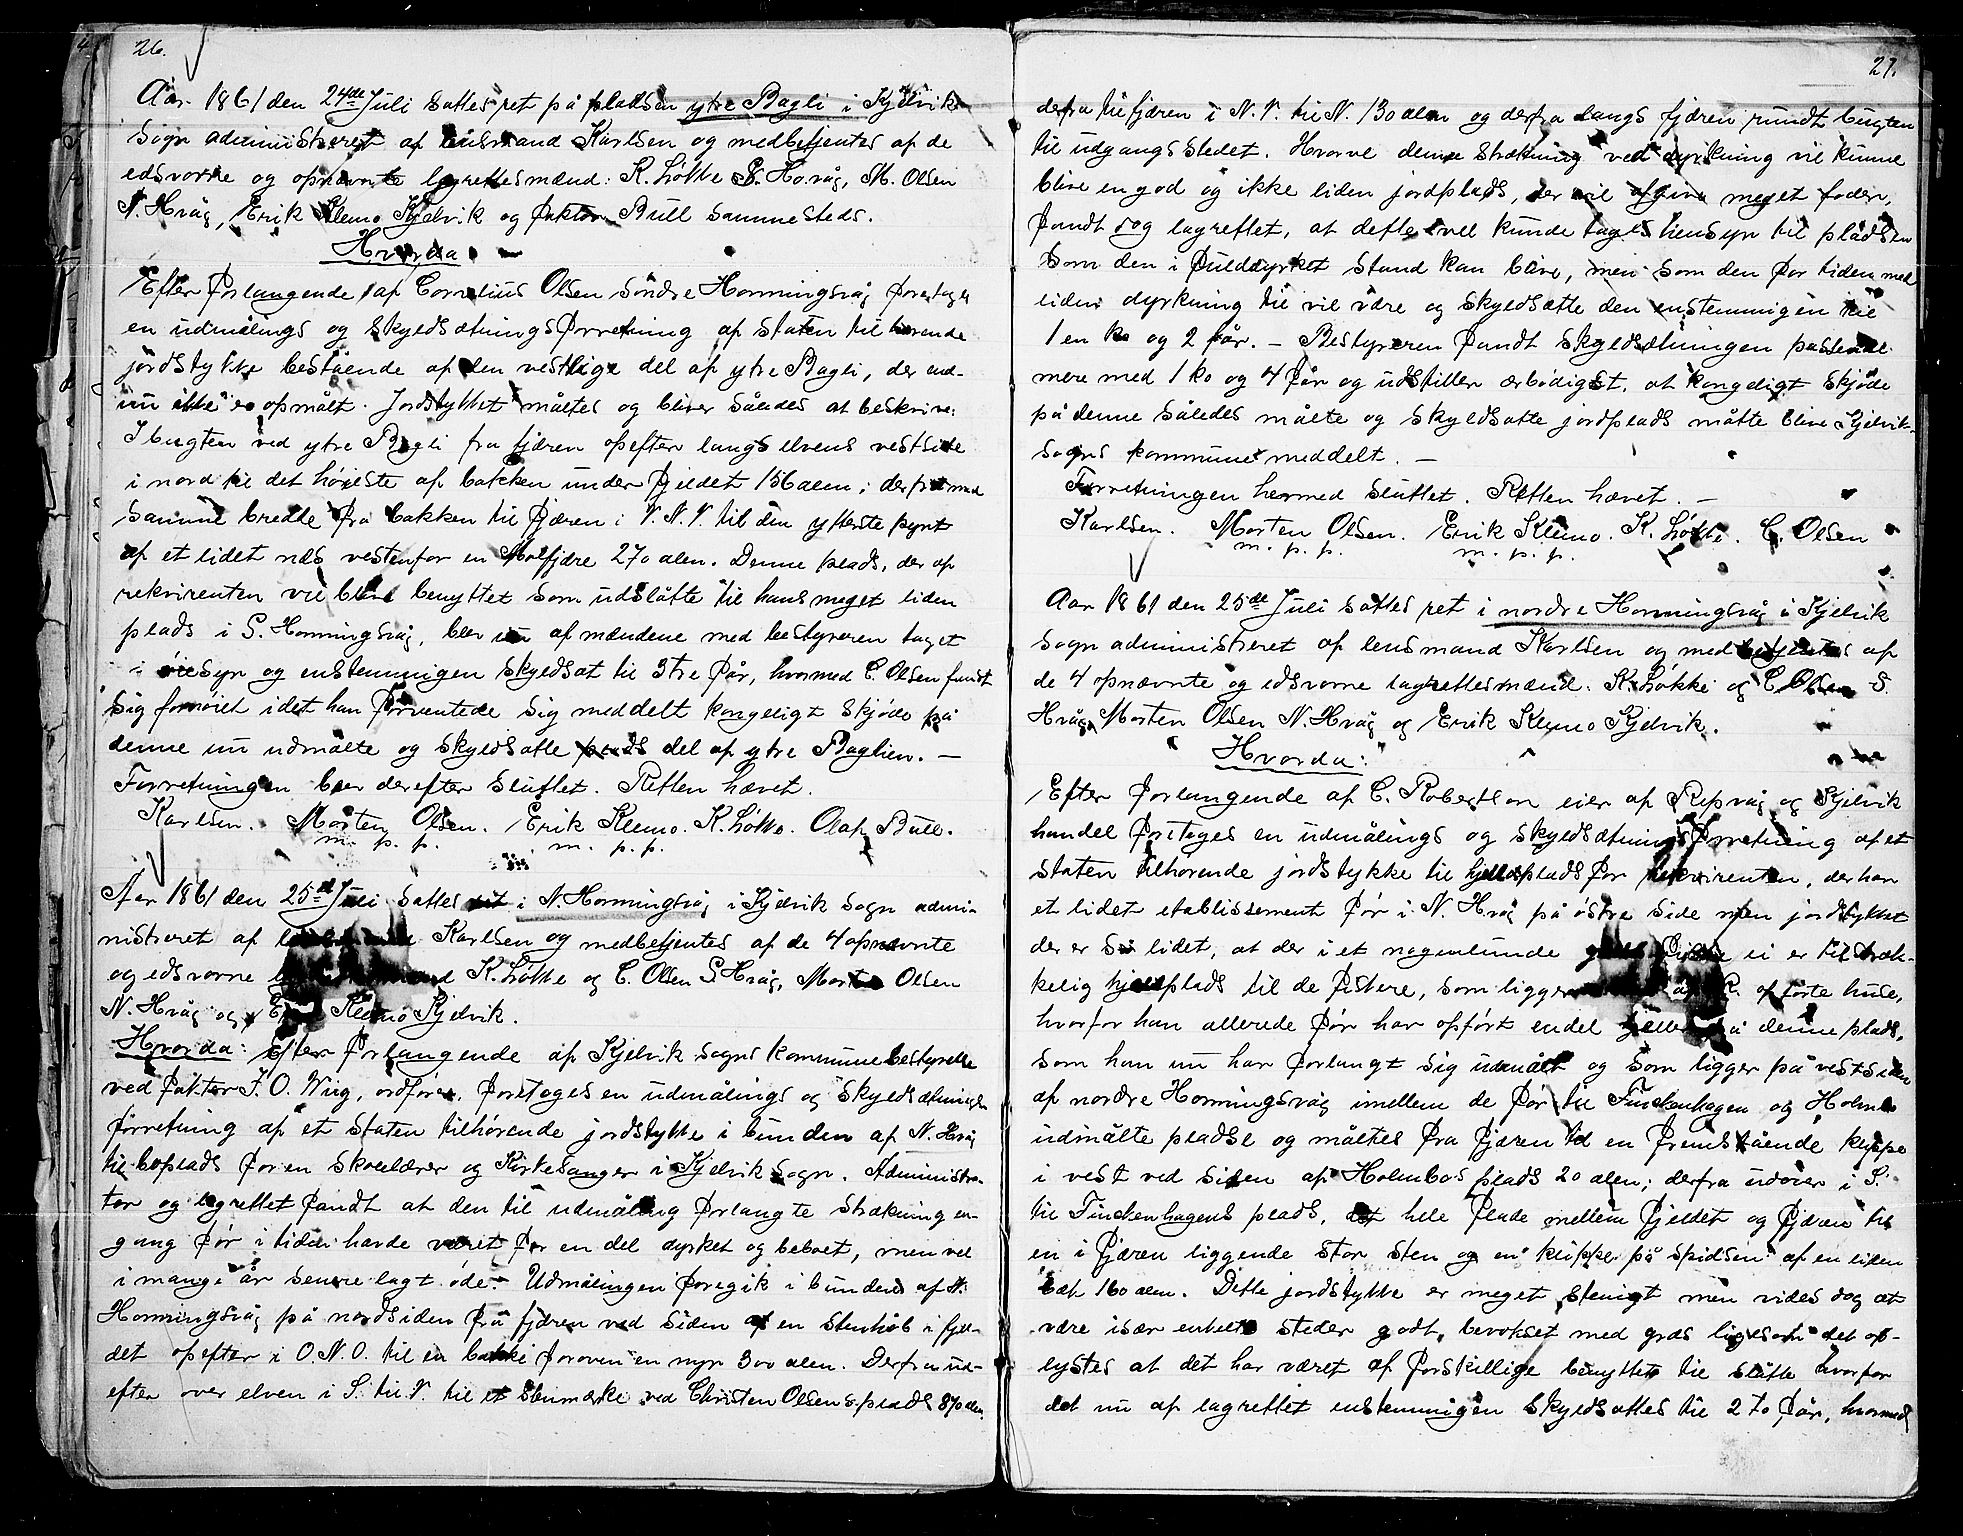 26.
Aar 1861 den 24de Juli sattes ret på pladsen ytre Bagli i Kjelvik
sogn administreret af lensmand Karlsen og medbetjentes af de
edsvorne og opnævnte lagrettesmænd: K. Løkke S. Hvåg, M. Olsen
N. Hvåg, Erik Klemo Kjelvik og faktor Bull sammesteds.
Hvorda
Efter forlangende af Cornelius Olsen søndre Honningsvåg foretages
en udmålings og skyldsætningsforretning af staten tilhørende
jordstykke bestående af den vestlige del af ytre Bagli, der end-
nu ikke er opmålt. Jordstykket måltes og bliver således at beskrive:
I bugten ved ytre Bagli fra fjæren opefter langs elvens vestside
i nord til det høieste af bakken under fjeldet 156 alen; derfra med
samme bredde fra bakken til fjæren i V.N.V. til den ytterste pynt
af et lidet næs vestenfor en Molfjære 270 alen. Denne plads, der af
rekvirenten vil blive benyttet som udslåtte til hans meget liden
plads i S. Honningsvåg, blev nu af mændene med bestyreren taget
i øiesyn og enstemmigen skyldsat til 3tre får, hvormed C. Olsen fandt
sig fornøiet idet han forventede sig meddelt kongeligt skjøde på
denne nu udmålte og skyldsatte plads del af ytre Baglien. —
Forretningen blev derefter sluttet. Retten hævet.
Karlsen. Morten Olsen. Erik Klemo. K. Løkke. Olaf Bull.
m. p. p. m. p. p.
Aar 1861 den 25de Juli sattes ret i N. Honningsvåg i Kjelvik sogn admi-
nistreret af Karlsen og medbetjentes af de 4 opnævnte
og edsvorne K. Løkke og C. Olsen S. Hvåg, Morten Olsen
N. Hvåg og Erik Klemo Kjelvik.
Hvorda: Efter forlangende af Kjelvik sogns kommunebestyrelse
ved faktor J. O. Wiig, ordfører, foretages en udmålings og skyldsætnings
forretning af et staten tilhørende jordstykke i bunden af N. Hvåg
til boplads for en skolelærer og Kirkesanger i Kjelvik sogn. Administra-
tor og lagrettet fandt at den til udmåling forlangte strækning en-
gang før i tiden havde været for en del dyrket og beboet, men vel
i mange år senere lagt øde. Udmålingen foregik i bunden af N.
Honningsvåg på nordsiden fra fjæren ved siden af en stenhob i fjel-
det opefter i O.N.O. til en bakke foroven en myr 300 alen. Derfra ud-
efter over elven i S. til V. til et stenmærke ved Christen Olsens plads 870 alen,
27.
derfra til fjæren i N.V. til N. 130 alen og derfra langs fjæren rundt bugten
til udgangsstedet. Hvorvel denne strækning ved dyrkning vil kunne
blive en god og ikke liden jordplads, der vil afgive meget foder,
fandt dog lagrettet, at dette vel kunde tages hensyn til pladsen
som den i fulddyrket stand kan blive, men som den for tiden med
liden dyrkning til vil være og skyldsætte den enstemmigen til
1 en ko og 2 får. — Bestyreren fandt skyldsætningen passende
mere med 1 ko og 4 får og udstiller ærbødigst, at kongeligt skjøde
på denne således målte og skyldsatte jordplads måtte blive Kjelvik-
sogns kommune meddelt. —
Forretningen hermed sluttet. Retten hævet. —
Karlsen. Morten Olsen. Erik Klemo. K. Løkke. C. Olsen
m. p. p. m. p. p.
Aar 1861 den 25de Juli sattes ret i nordre Honningsvåg i Kjelvik
sogn administreret af lensmand Karlsen og medbetjentes af
de 4 opnævnte og edsvorne lagrettesmænd: K. Løkke og C. Olsen S.
Hvåg, Morten Olsen N. Hvåg og Erik Klemo Kjelvik.
Hvorda:
Efter forlangende af C. Robertson eier af Repvåg og Kjelvik
handel foretages en udmålings og skyldsætningsforretning af et
staten tilhørende jordstykke til hjeldplads for rekvirenten, der har
et lidet etablissement før i N. Hvåg på østre side men jordstykket
der er så lidet, at der i et nogenlunde ei er tilstræk-
kelig hjeldplads til de fiskere, som ligger R. opførte huse,
hvorfor han allerede før har opført endel hjelle på denne plads,
som han nu har forlangt sig udmålt og som ligger på vestsiden
af nordre Honningsvåg imellem de før til Finckenhagen og Holmbo
udmålte pladse og måltes fra fjæren ved en fremstående klippe
i vest ved siden af Holmbos plads 20 alen; derfra udover i S.
til Finckenhagens plads, det hele flade mellem fjeldet og fjæren til
en i fjæren liggende stor sten og en klippe på spidsen af en liden
bæk 160 alen. Dette jordstykke er meget stenigt men vides dog at
være især enkelte steder godt bevokset med græs ligesom det op-
lystes at det har været af forskillige benyttet til slåtte hvorfor
det nu af lagrettet enstemmigen skyldsattes til 2 to får, hvormed